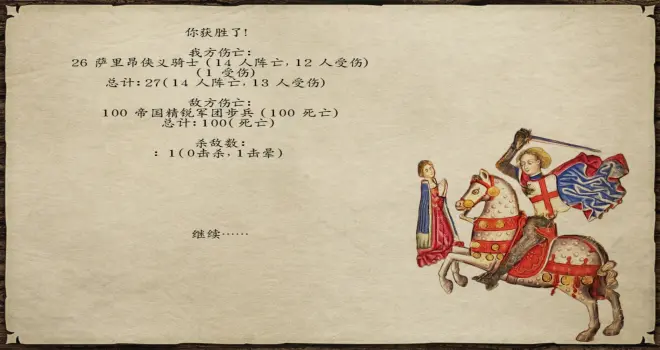 你获胜了!
我方伤亡:
26 萨里昂侠义骑士 (14 人阵亡,12 人受伤)
(1 受伤)
总计:27(14 人阵亡,13 人受伤)
敌方伤亡:
100 帝国精锐军团步兵 (100 死亡)
总计:100(死亡)
杀敌数:
: 1(0击杀,1击晕)
继续……